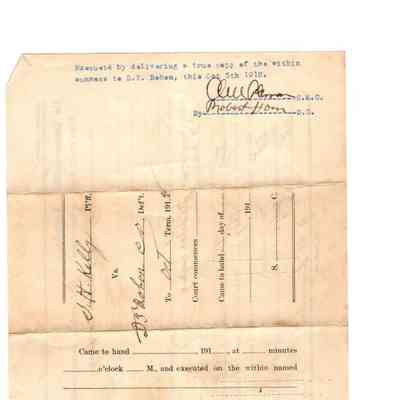 Executed by delivering a true copy of the within
summons to D.Y. Rohen, this Oct 5th 1912.
S.M.C.
By Robert Hom D.S.
S.H. Kelly Pl'ff.
Vs.
Def't.
To Oct Term, 191
Court commences
Came to hand day of
191
S. C.
Came to hand , 191 , at minutes
o'clock M., and executed on the within named